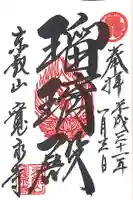 奉拝 平成三十一年
一月六日
瑠璃殿
東叡山 寛永寺